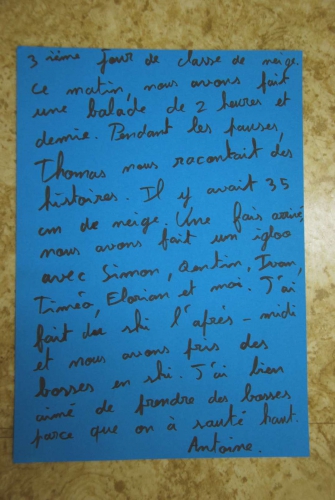 3 ième jour de classe de neige
Ce matin, nous avons fait
une balade de 2 heures et
demie. Pendant les pauses,
Thomas nous racontait des
histoires. Il y avait 35
cm de neige. Une fois arrivé,
nous avons fait un igloo
avec Simon, Qentin, Ivan,
Timéo, Elorian et moi. J'ai
fait du ski l'aprés-midi
et nous avons pris des
bosses en ski. J'ai bien
aimé de prendre des bosses
parce que on à sauté haut.
Antoine.